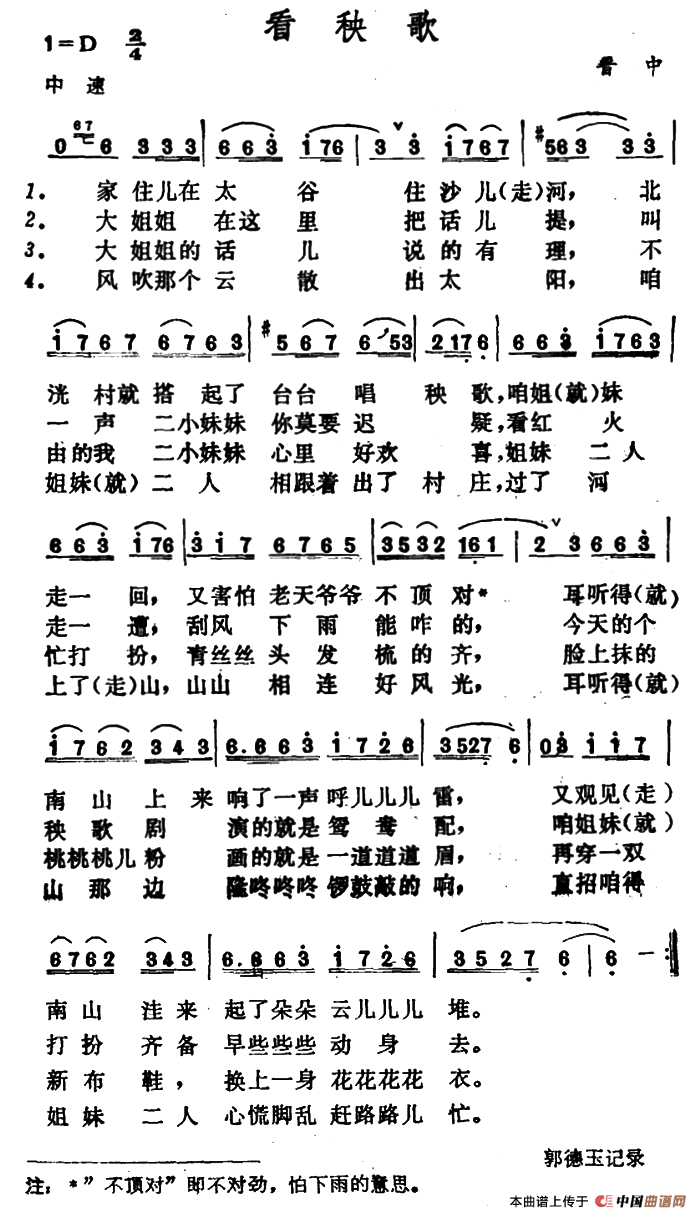 看秧歌
1=D 2/4
晋中
中速
67
0 6 3 3 3 | 6 6 3 1 7 6 | 3 3 1 7 6 7 | #5 6 3 3 3 |
1. 家住儿在太谷住沙儿(走)河,北
2. 大姐姐在这里把话儿提,叫
3. 大姐姐的话儿说的有理,不
4. 风吹那个云散出太阳,咱
1 7 6 7 6 7 6 3 | #5 6 7 6 5 3 | 2 1 7 6 | 6 6 3 1 7 6 3 |
洸村就搭起了台台唱秧歌,咱姐(就)妹
一声二小妹妹你莫要迟疑,看红火
由的我二小妹妹心里好欢喜,姐妹二人
姐妹(就)二人相跟着出了村庄,过了河
6 6 3 1 7 6 | 3 1 7 6 7 6 5 | 3 5 3 2 1 6 1 | 2 3 6 6 3 |
走一回,又害怕老天爷爷不顶对*耳听得(就)
走一遭,刮风下雨能咋的,今天的个
忙打扮,青丝丝头发梳的齐,脸上抹的
上了(走)山,山山相连好风光,耳听得(就)
1 7 6 2 3 4 3 | 6. 6 6 3 1 7 2 6 | 3 5 2 7 6 | 0 3 1 1 7 |
南山上来响了一声呼儿儿儿雷,又观见(走)
秧歌剧演的就是鸳鸯配,咱姐妹(就)
桃桃桃儿粉画的就是一道道道眉,再穿一双
山那边隆咚咚咚锣鼓敲的响,直招咱得
6 7 6 2 3 4 3 | 6. 6 6 3 1 7 2 6 | 3 5 2 7 6 | 6 — :|
南山洼来起了朵朵云儿儿儿堆。
打扮齐备早些些些动身去。
新布鞋,换上一身花花花花衣。
姐妹二人心慌脚乱赶路路儿忙。
郭德玉记录
注:*"不顶对"即不对劲,怕下雨的意思。
本曲谱上传于 中国曲谱网